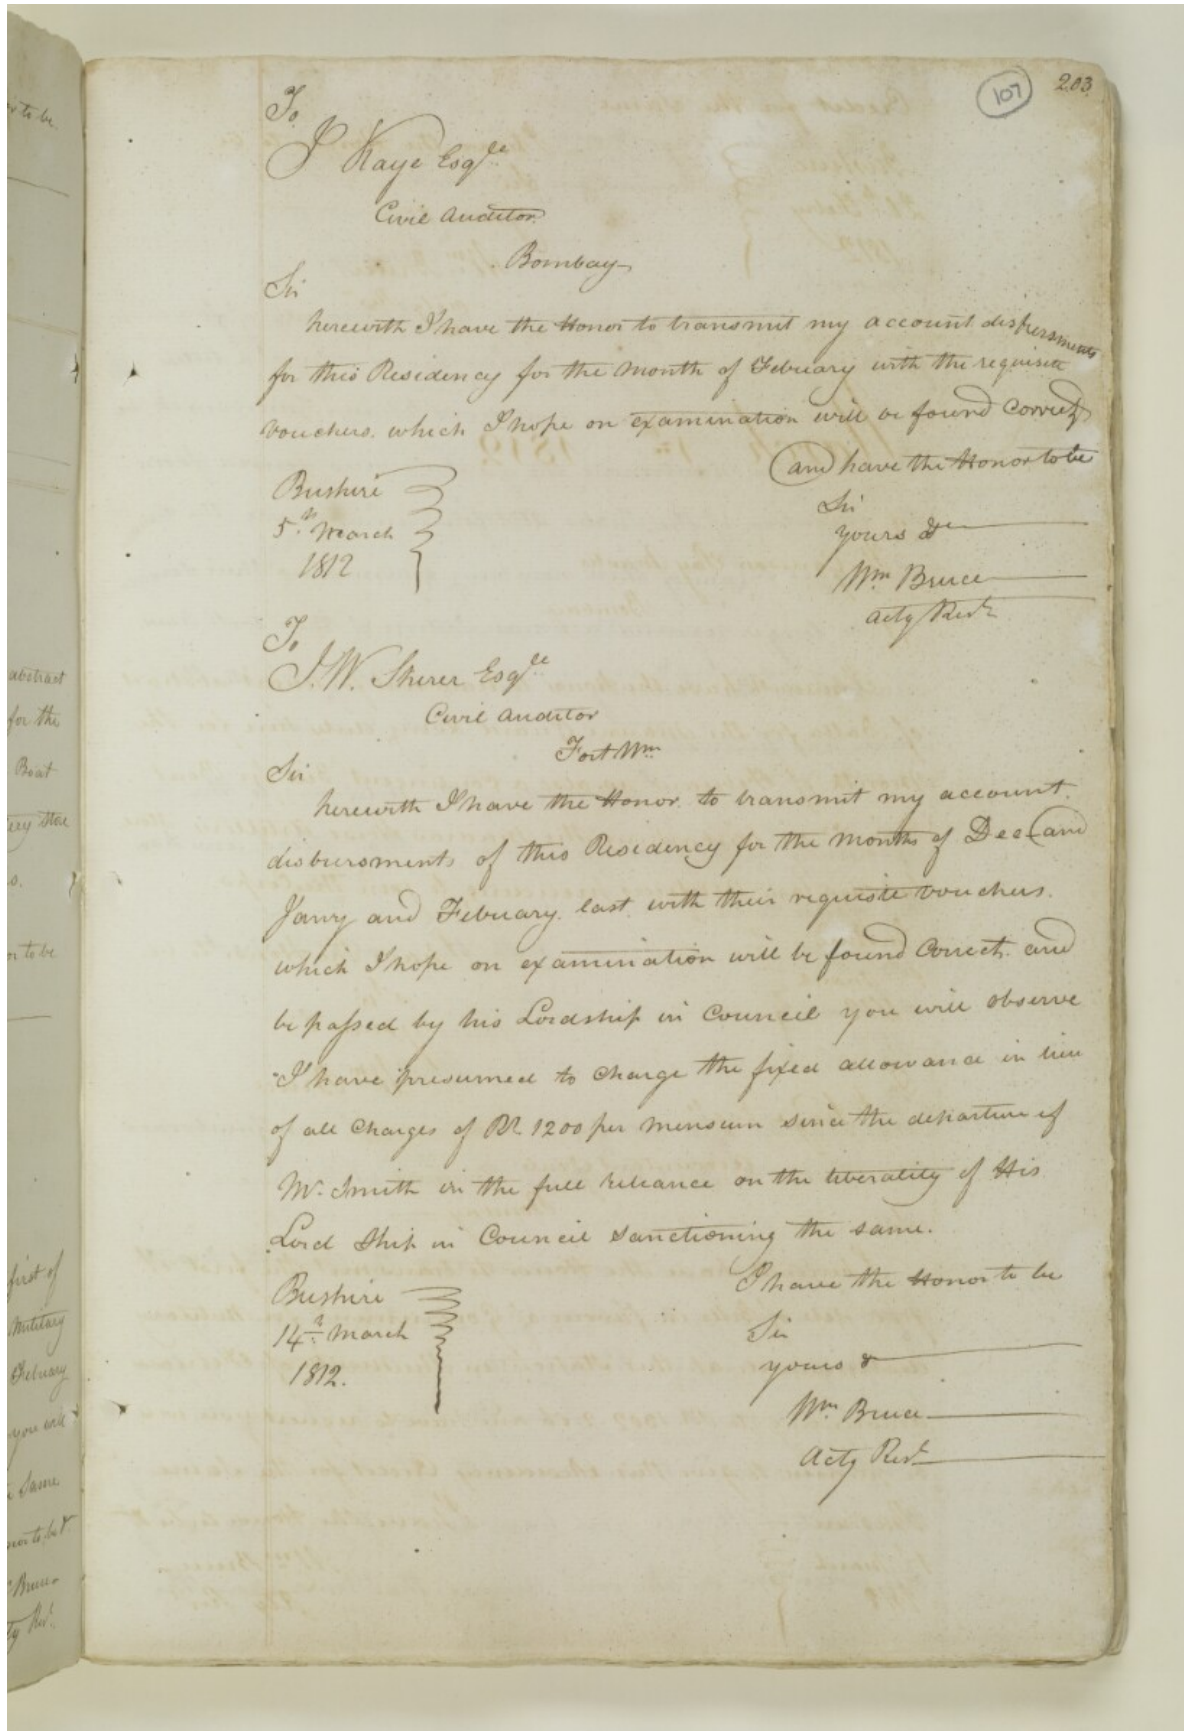 203.
107
To
J Kaye Esqre
Civil Auditor
Bombay
Sir
herewith I have the Honor to transmit my account disbursments
for this Residency for the Month of Febuary with the requisite
vouchers. which I hope on examination will be found Correct
and have the Honor to be
Bushire
5th March
1812
Sir
yours &
Wm Bruce
Actg Resdt
To
J. W. Sherer Esqre
Civil Auditor
Fort Wm
Sir
herewith I have the Honor. to transmit my account.
disbursments of this Residency for the Months of Dec and
Janry and Febuary. last with their requisite vouchers.
which I hope on examination will be found Correct. and
be passed by his Lordship in Council you will observe
I have presumed to Charge the fixed allowance in lieu
of all Charges of Rs. 1200 per mensum since the departure of
Mr. Smith in the full reliance on the liberality of His
Lord Ship in Council sanctioning the same.
I have the Honor to be
Bushire
14th March
1812.
Sir
yours &
Wm Bruce
Actg Resdt
abstract
for the
Boat
or to be
first of
Military
Febuary
you will
Same
Bruce